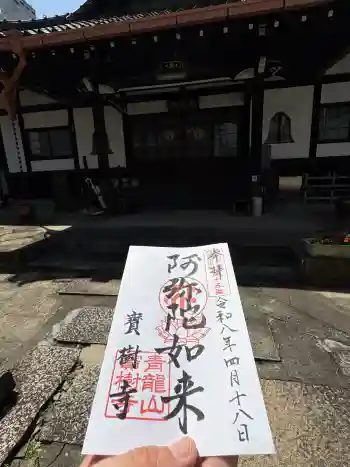 奉拝
令和八年四月十八日
阿弥陀如来
寶樹寺
青龍山
寶樹寺